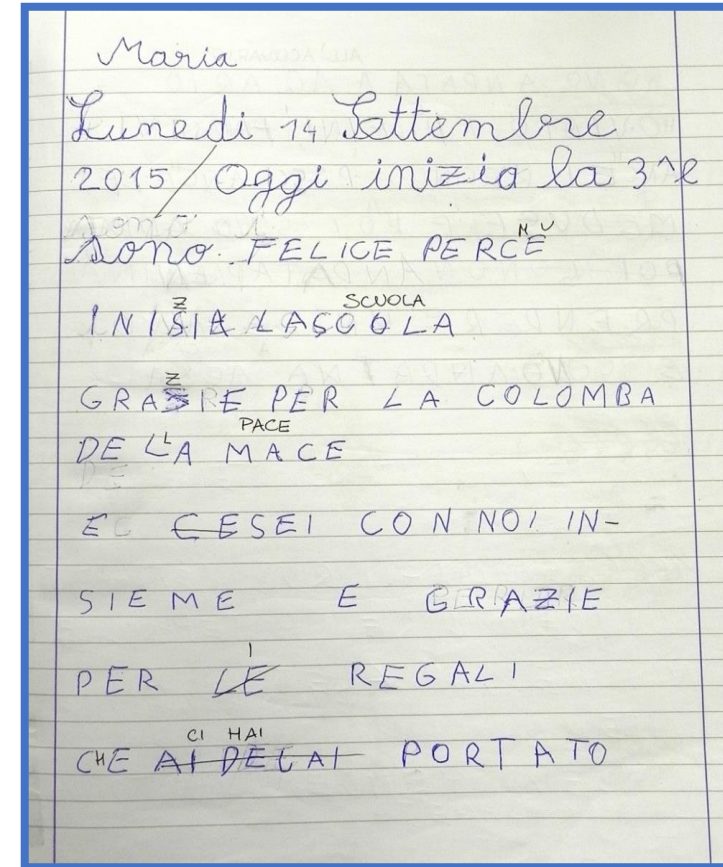 Maria
Lunedi 14 Settembre
2015 / Oggi inizia la 3^e
sono FELICE PERCE
H U
INISIA LASCOLA
Z SCUOLA
GRASIE PER LA COLOMBA
Z
DE LA MACE
L PACE
E CESEI CON NOI IN-
SIEME E GRAZIE
PER LE REGALI
I
CHE AI DELAI PORTATO
CI HAI